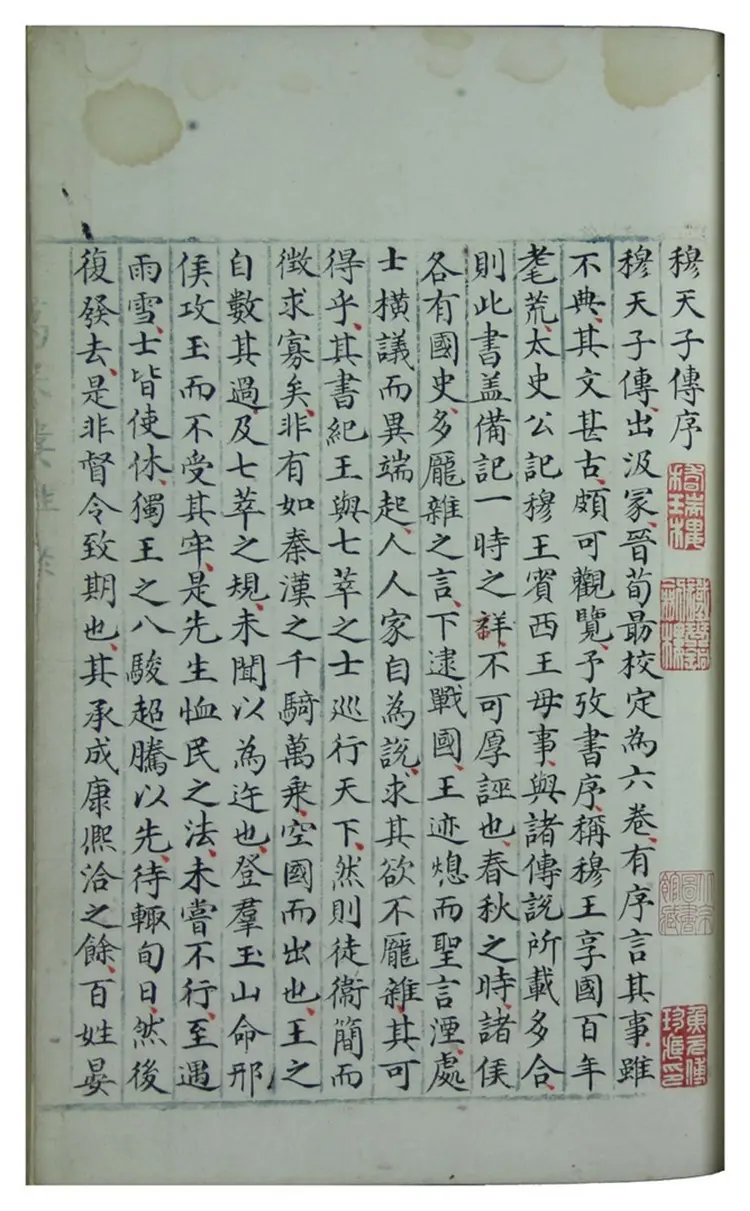 穆天子傳序
穆天子傳出汲冢晉荀朂校定為六卷有序言其事雖
不典其文甚古頗可觀覽予攷書序稱穆王享國百年
耄荒太史公記穆王賓西王母事與諸傳說所載多合
則此書盖備記一時之詳不可厚誣也春秋之時諸侯
各有國史多龎雜之言下逮戰國王迹熄而聖言湮處
士橫議而異端起人人家自為說求其欲不龎雜其可
得乎其書紀王與七萃之士巡行天下然則徒衞簡而
徵求寡矣非有如秦漢之千騎萬乘空國而出也王之
自數其過及七萃之規未聞以為迕也登羣玉山命邢
侯攻玉而不受其牢是先生恤民之法未嘗不行至遇
雨雪士皆使休獨王之八駿超騰以先待輙旬日然後
復發去是非督令致期也其承成康熈洽之餘百姓晏